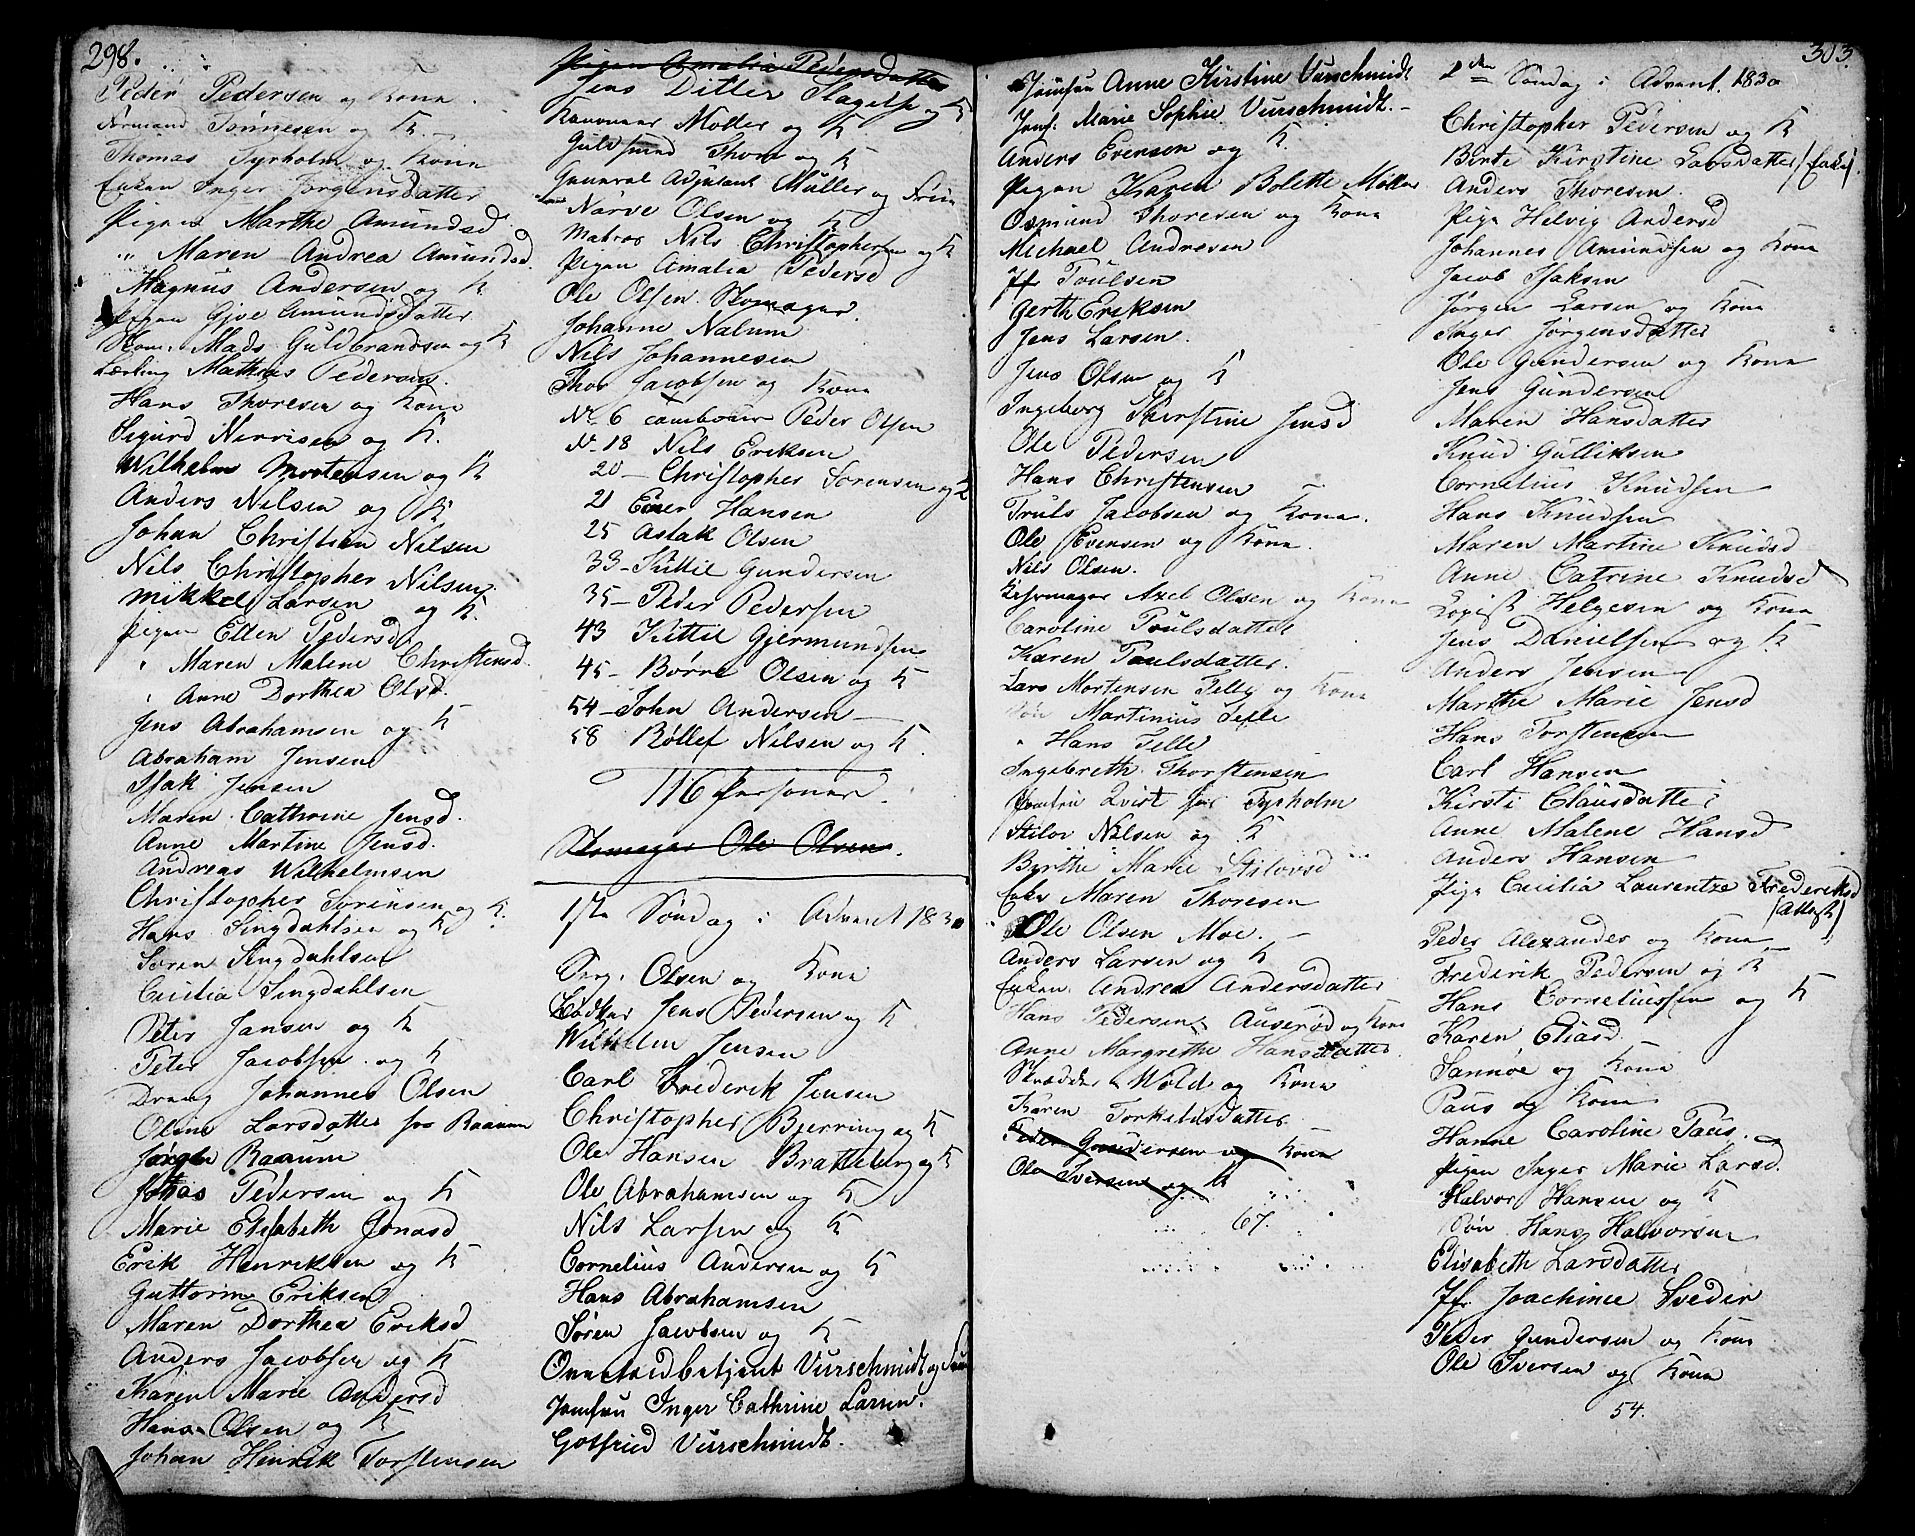 298.
Peder Pedersen og Kona
Tönnesen og K.
Thomas Tyrholm og Kona
Enken Inger Jørgensdatter
Pigen Marthe Amundsd
" Maren Andrea Amundsd.
Magnus Andersen og K
Pigen Gjøe Amundsdatter
Mads Guldbrandsen og K
Lærling Mathias Pedersen.
Hans Thoresen og Kona
Sigurd Nerrisen og K.
Wilhelm Mortensen og K
Anders Nilsen og K
Johan Christian Nilsen
Nils Christopher Nilsen
Mikkel Larsen og K.
Pigen Ellen Pedersd
" Maren Malene Christensd.
" Anne Dorthea Olsd.
Jens Abrahamsen og K
Abraham Jensen
Isak Jensen
Maren Cathrine Jensd.
Anne Martine Jensd.
Andreas Wilhelmsen
Christopher Sørensen og K.
Hans Singdahlsen og K
Søren Singdahlsen
Cicilia Singdahlsen
Peter Jansen og K
Peter Jacobsen og K
Dreng Johannes Olsen
Oline Larsdatter for Raaum
Jørgen Raaum
Jonas Pedersen og K
Marie Elisabeth Jonasd
Erik Henriksen og K
Guttorm Eriksen
Maren Dorthea Eriksd
Anders Jacobsen og K
Karen Marie Andersd
Hans Olsen og K
Johan Hinrik Torstensen
Pigen Amalia Pedersdatter
Jens Ditler Slagelse og K
Møller og K
Guldsmed Thor og K
General Adjutant Müller og Frue
Narve Olsen og K
Matros Nils Christophersen og K
Pigen Amalia Pedersd
Ole Olsen Skomager.
Johanne Nalum
Nils Johannesen
Thor Jacobsen og Kona
No 6 Tambour Peder Olsen
No 18 Nils Eriksen
20 - Christopher Sørensen og K
21 Ener Hansen
25 Aslak Olsen
33 - Kittil Gundersen
35 - Peder Pedersen
43 Kittil Gjermundsen
45 - Børre Olsen og K
54 - John Andersen -
58 Rollef Nilsen og K.
116 Personer.
Skomager Ole Olsen.
1ste Søndag i Advent 1830
Serg. Olsen og Kona
Bødker Jens Pedersen og K
Wilhelm Jensen
Carl Frederik Jensen
Christopher Bjerring og K
Ole Hansen Bratteberg og K
Ole Abrahamsen og K
Nils Larsen og K
Cornelius Andersen og K
Hans Abrahamsen
Søren Jacobsen og K
Overtoldbetjent Vurschmidt og Frue
Jomfru Inger Cathrine Larsen.
Gotfried Vurschmidt.
Jomfru Anne Kirstine Vurschmidt
Jomf. Marie Sophie Vurschmidt. -
Anders Evensen og K.
Pigen Karen Bolette Møller
Osmund Thoresen og Kona
Michael Andresen
Jfr Poulsen
Gerth Eriksen
Jens Larsen.
Jens Olsen og K
Ingeborg Kirstine Jensd
Ole Pedersen
Hans Christensen
Truls Jacobsen og Kona.
Ole Evensen og Kona.
Nils Olsen.
Axel Olsen og Kona
Caroline Poulsdatter
Karen Poulsdatter.
Lars Mortensen Telle og Kona
Søn Martinius Telle
" Hans Telle
Ingebreth Thorstensen
Jomfru Qvist for Tyrholm
Stilov Nilsen og K
Byrthe Marie Stilovsd
Enke Maren Thoresen
Ole Olsen Moe. -
Anders Larsen og K
Enken Andrea Andersdatter
Hans Pedersen Auserød og Kona
Anne Margrethe Hansdatter.
Skrædder Wold og Kona
Karen Torkelsdatter
Peder Gundersen og Kona
Ole Iversen og K
67.
303.
2den Søndag i Advent 1830
Christopher Pedersen og K
Birte Kirstine Larsdatter (Enke)
Anders Thoresen.
Pige Helvig Andersd
Johannes Amundsen og Kona
Jacob Isaksen
Jørgen Larsen og Kona
Inger Jørgensdatter
Ole Gundersen og Kona
Jens Gundersen
Maren Hansdatter
Knud Gulliksen
Cornelius Knudsen
Hans Knudsen
Maren Martine Knudsd
Anne Catrine Knudsd
Helgesen og Kona
Jens Danielsen og K
Anders Jensen
Marthe Marie Jensd
Hans Torstensen
Carl Hansen
Kirsti Clausdatter
Anne Malene Hansd
Anders Hansen
Pige Cecilia Laurentze Frederiksd
(Attest)
Peder Alexander og Kona
Frederik Pedersen og K
Hans Corneliussen og K
Karen Eliasd
Sannøe og Kona
Paus og Kona
Hanne Caroline Paus.
Pigen Inger Marie Larsd
Halvor Hansen og K
Søn Hans Halvorsen
Elisabeth Larsdatter
Jfr Joachinie Sveder
Peder Gundersen og Kona
Ole Iversen og Kona
54.